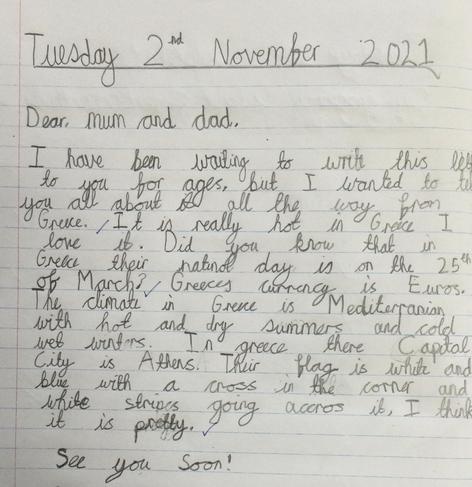 Tuesday 2nd November 2021
Dear. mum and dad.
I have been waiting to write this
to you for ages, but I wanted to
you all about it all the way from
Greece. It is really hot in Greece I
love it. Did you know that in
Greece their natinol day is on the 25th
of March? Greeces currency is Euros.
The climate in Greece is Mediterranian
with hot and dry summers and cold
wet winters. In greece there Capital
City is Athens. Their flag is white and
blue with a cross in the corner and
white stripes going accros it, I think
it is pretty.
See you Soon!